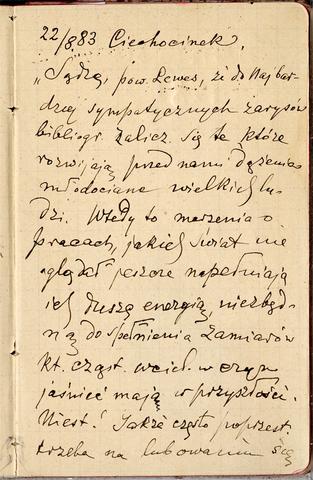 22/8 83 Ciechocinek.
„Sądzę, pow. Lewes, że do najbar-
dziej sympatycznych zarysów
bibliogr. zalicz. się te, które
rozwijają przed nami dążenia
młodociane wielkich lu-
dzi. Wtedy to marzenia o
pracach, jakich świat nie
oglądał jeszcze napełniają
ich duszę energią, niezbęd-
ną do spełnienia zamiarów
kt. cząst. wciel. w czyn
jaśnieć mają w przyszłości.
Niest.! Jakże często poprzest.
trzeba na lubowaniu się